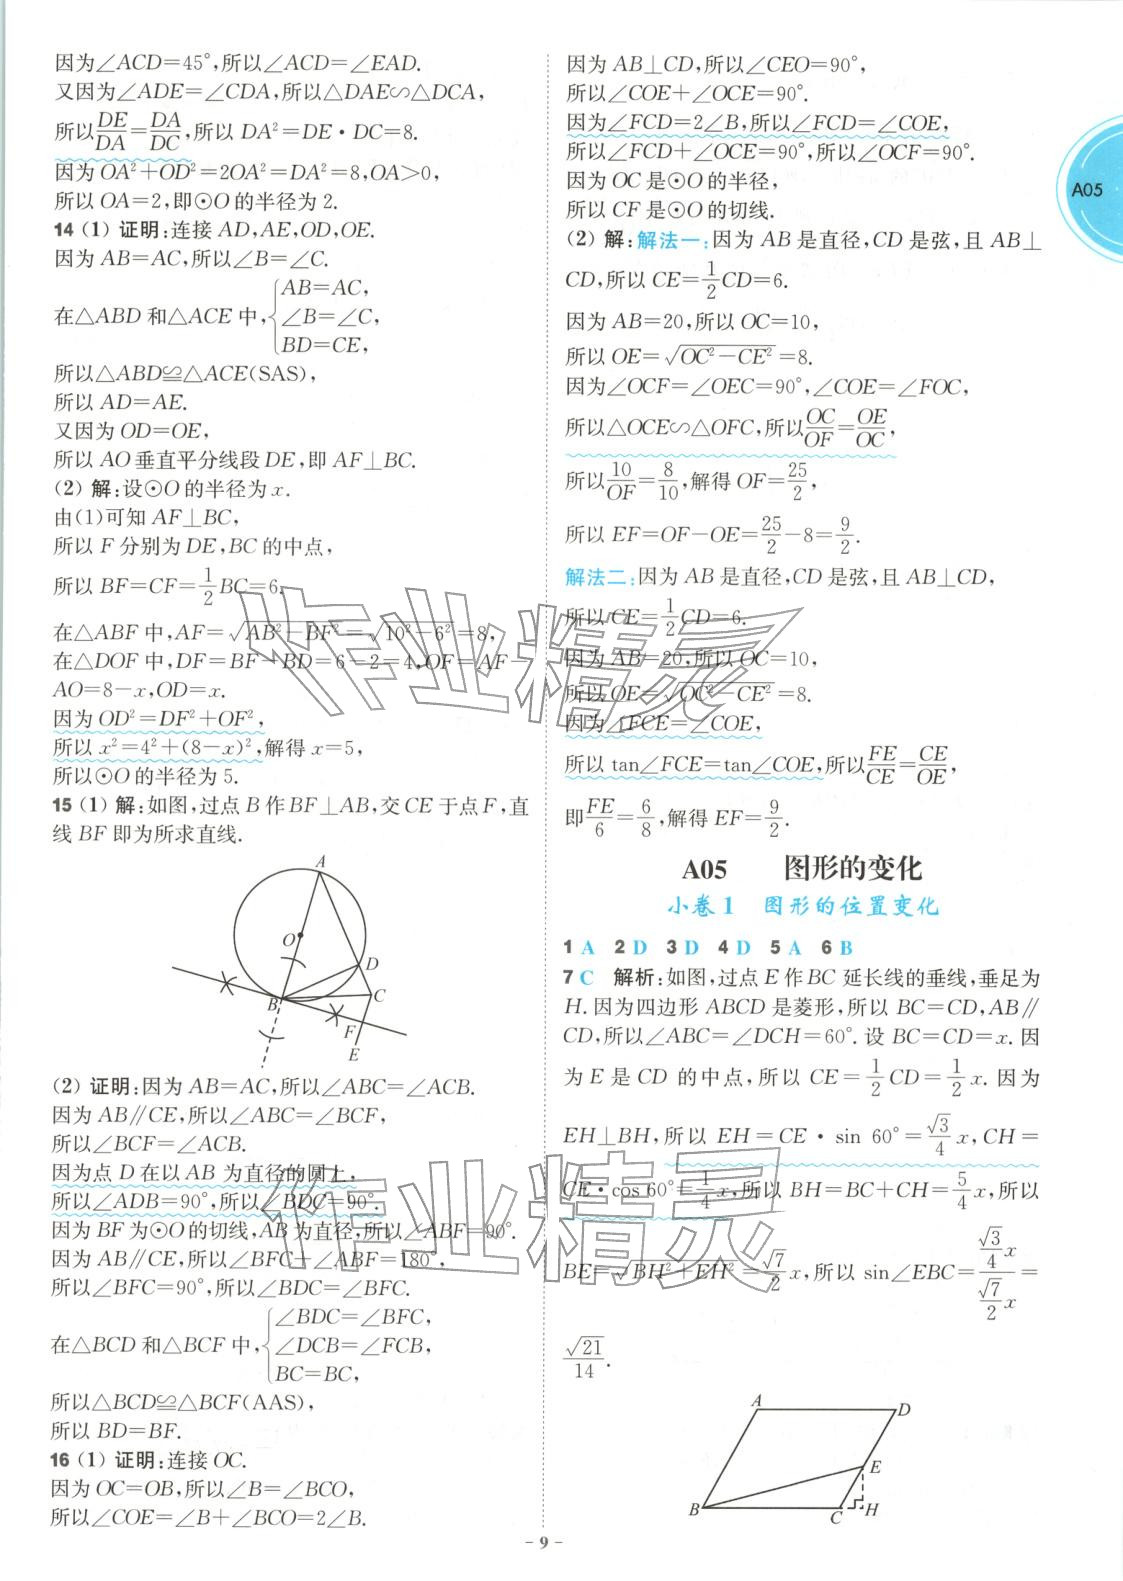 因为∠ACD=45°,所以∠ACD=∠EAD.
又因为∠ADE=∠CDA,所以△DAE∽△DCA,
所以DE/DA=DA/DC,所以 DA²=DE·DC=8.
因为OA²+OD²=2OA²=DA²=8,OA>0,
所以 OA=2,即⊙O的半径为 2.
14 (1) 证明:连接 AD,AE,OD,OE.
因为 AB=AC,所以∠B=∠C.
在△ABD 和△ACE 中,{AB=AC,
∠B=∠C,
BD=CE,
所以△ABD≌△ACE(SAS),
所以 AD=AE.
又因为 OD=OE,
所以 AO 垂直平分线段 DE,即 AF⊥BC.
(2) 解:设⊙O 的半径为 x.
由(1)可知 AF⊥BC,
所以 F 分别为 DE,BC 的中点,
所以 BF=CF=1/2BC=6.
在△ABF 中,AF=√AB²-BF²=√10²-6²=8,
在△DOF 中,DF=BF-BD=6-2=4,OF=AF-
AO=8-x,OD=x.
因为 OD²=DF²+OF²,
所以 x²=4²+(8-x)²,解得 x=5,
所以⊙O 的半径为 5.
15 (1) 解:如图,过点 B 作 BF⊥AB,交 CE 于点 F,直
线 BF 即为所求直线.
A
O
D
B
C
F
E
(2) 证明:因为 AB=AC,所以∠ABC=∠ACB.
因为 AB∥CE,所以∠ABC=∠BCF,
所以∠BCF=∠ACB.
因为点 D 在以 AB 为直径的圆上,
所以∠ADB=90°,所以∠BDC=90°.
因为 BF 为⊙O 的切线,AB 为直径,所以∠ABF=90°.
因为 AB∥CE,所以∠BFC+∠ABF=180°,
所以∠BFC=90°,所以∠BDC=∠BFC.
在△BCD 和△BCF 中,{∠BDC=∠BFC,
∠DCB=∠FCB,
BC=BC,
所以△BCD≌△BCF(AAS),
所以 BD=BF.
16 (1) 证明:连接 OC.
因为 OC=OB,所以∠B=∠BCO,
所以∠COE=∠B+∠BCO=2∠B.
因为 AB⊥CD,所以∠CEO=90°,
所以∠COE+∠OCE=90°.
因为∠FCD=2∠B,所以∠FCD=∠COE,
所以∠FCD+∠OCE=90°,所以∠OCF=90°.
因为 OC 是⊙O 的半径,
所以 CF 是⊙O 的切线.
(2) 解:解法一:因为 AB 是直径,CD 是弦,且 AB⊥
CD,所以 CE=1/2CD=6.
因为 AB=20,所以 OC=10,
所以 OE=√OC²-CE²=8.
因为∠OCF=∠OEC=90°,∠COE=∠FOC,
所以△OCE∽△OFC,所以OC/OF=OE/OC,
所以10/OF=8/10,解得 OF=25/2,
所以 EF=OF-OE=25/2-8=9/2.
解法二:因为 AB 是直径,CD 是弦,且 AB⊥CD,
所以 CE=1/2CD=6.
因为 AB=20,所以 OC=10,
所以 OE=√OC²-CE²=8.
因为∠FCE=∠COE,
所以 tan∠FCE=tan∠COE,所以FE/CE=CE/OE,
即FE/6=6/8,解得 EF=9/2.
A05 图形的变化
小卷 1 图形的位置变化
1 A 2 D 3 D 4 D 5 A 6 B
7 C 解析:如图,过点 E 作 BC 延长线的垂线,垂足为
H. 因为四边形 ABCD 是菱形,所以 BC=CD,AB∥
CD,所以∠ABC=∠DCH=60°. 设 BC=CD=x. 因
为 E 是 CD 的中点,所以 CE=1/2CD=1/2x. 因为
EH⊥BH,所以 EH=CE·sin 60°=√3/4x,CH=
CE·cos 60°=1/4x,所以 BH=BC+CH=5/4x,所以
BE=√BH²+EH²=√7/2x,所以 sin∠EBC=(√3/4x)/(√7/2x)=
√21/14.
A
D
E
B
C
H
A05
- 9 -
作业精灵
作业精灵